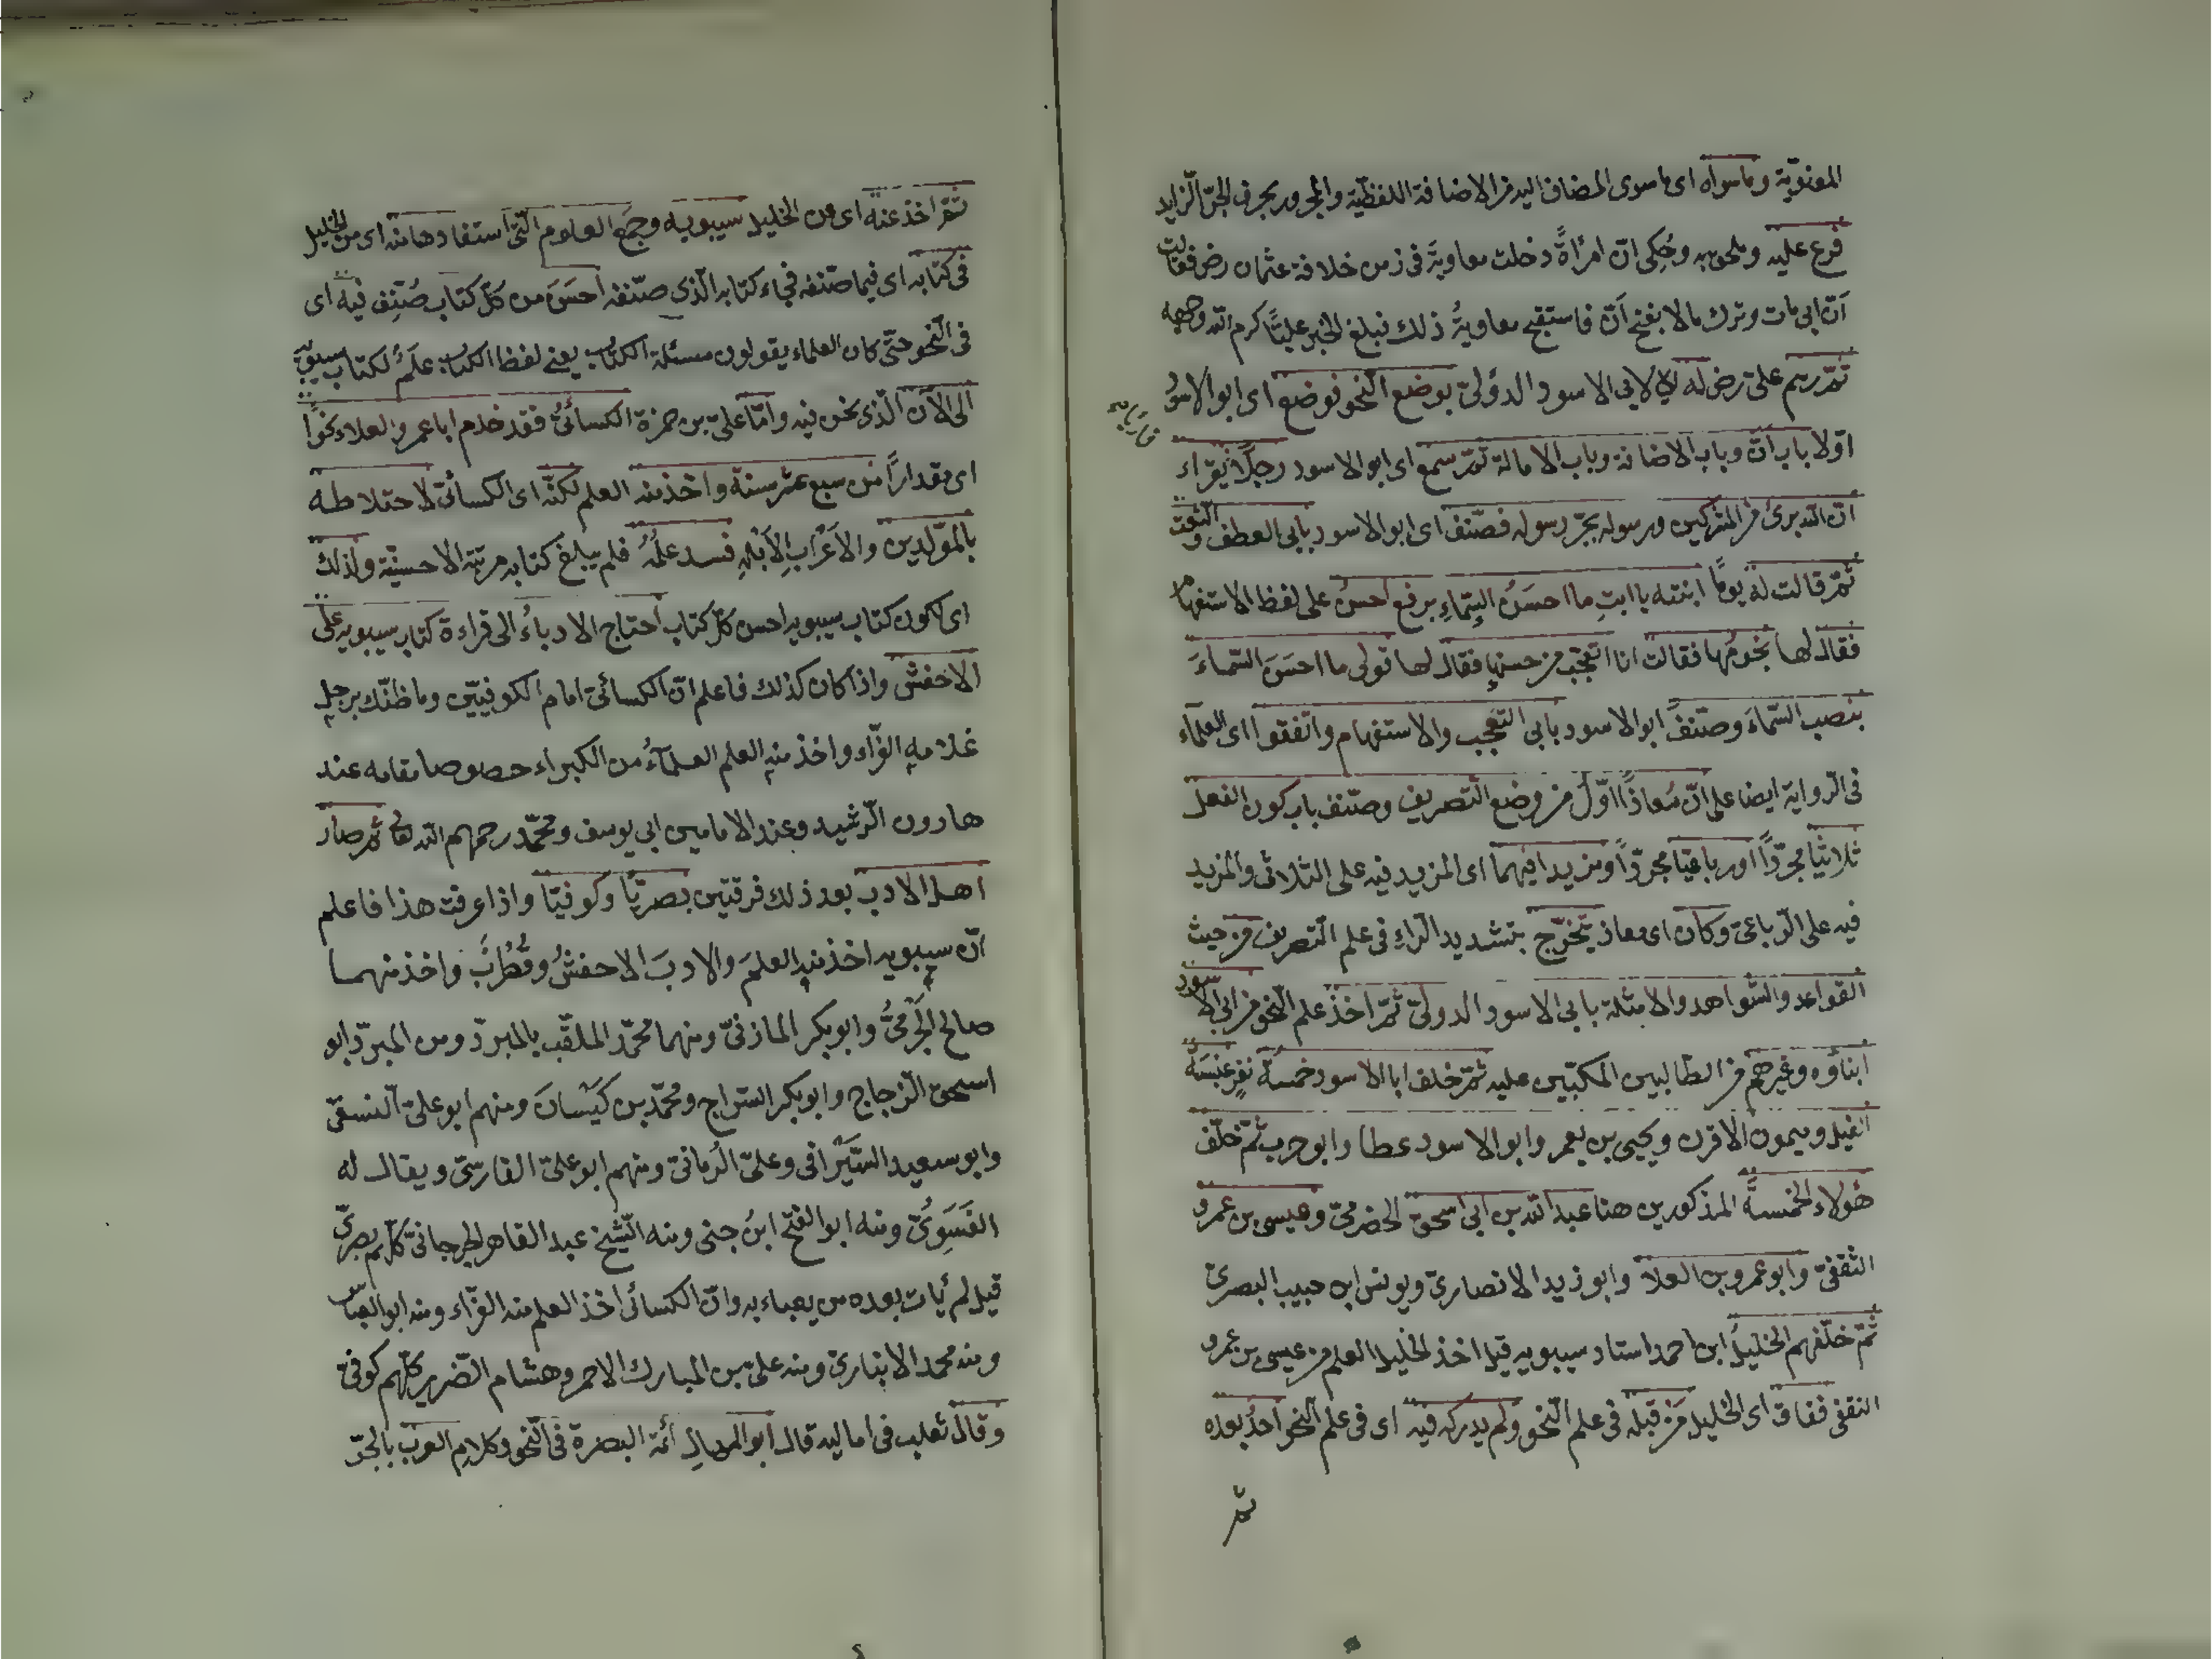 المعنويّة وماسواه اى ماسوى المضاف اليه من الاضافة اللفظيّة والمجرور بحرف الجرّ الزايد
فرع عليه وملحق به وحُكِى انّ امرأةً دخلت معاويةَ فى زمن خلافة عثمان رض فقالت
اَنّ ابى مات وترك مالا بفتح اَنّ فاستقبح معاويةُ ذلك فبلغ الخبر عليًّا كرم الله وجهه
ثمّ رسم علىّ رض له اى لابى الاسود الدؤلىّ بوضع النحو فوضع اى ابو الاسود
اوّلا باب انّ وباب الاضافة وباب الامالة ثمّ سمع اى ابو الاسود رجلًا يقراء
انّ الله برئ من المشركين ورسوله بجرّ رسوله فصنّف اى ابو الاسود بابى العطف والنعت
ثمّ قالت له يومًا ابنته يا ابتِ ما احسَنُ السّماءِ برفع احسنُ على لفظ الاستفهام
فقال لها نجومُها فقالت انا اتعجّب من حسنها فقال لها قولى ما احسَنَ السّماءَ
بنصب السّماءَ وصنّف ابو الاسود بابى التعجّب والاستفهام واتّفقوا اى العلماء
فى الرواية ايضا على انّ مُعاذًا اوّل من وضع التصريف وصنّف باب كون الفعل
ثلاثيّا مجرّدًا او رباعيّا مجرّدًا ومزيدا فيهما اى المزيد فيه على الثلاثى والمزيد
فيه على الرّباعىّ وكان اى معاذ تخرّج بتشديد الراء فى علم التصريف من حيث
القواعد والشواهد والامثلة بابى الاسود الدولىّ ثمّ اخذ علم النحو من ابى الاسود
ابناؤه وغيرهم من الطّالبين المكبّين عليه ثمّ خلف ابا الاسود خمسةُ نفرٍ عنبسَةُ
الفيل وميمون الاقرن ويحيى بن يعمر وابوالاسود عطا وابوحرب ثمّ خلّف
هؤلاء الخمسةَ المذكورين هنا عبد الله بن ابى اسحق الحضرمىّ وعيسى بن عمرو
الثقفىّ وابو عمرو بن العلا وابو زيد الانصارىّ ويونس ابن حبيب البصرىّ
ثمّ خلّفهم الخليلُ ابن احمد استاد سيبويه قيل اخذ الخليل العلم من عيسى بن عمرو
الثقفى ففاق اى الخليل مَن قبله فى علم النّحو ولم يدركه فيه اى فى علم النحو احدٌ بعده
ثمّ
ثمّ اخذ عنه اى من الخليل سيبويه وجمع العلوم الّتى استفادها منه اى من الخليل
فى كتابه اى فيما صنّفه فجاء كتابه الّذى صنّفه احسَنَ من كلّ كتاب صُنِّف فيه اى
فى النّحو حتّى كان العلماء يقولون مسئلة الكتاب يعنى لفظ الكتاب عَلَمٌ لكتاب سيبويه
الى الآن الّذى نحن فيه وامّا علىّ بن حمزة الكسائىّ فقد خدم ابا عمرو العلاء نحوًا
اى مقدارًا من سبع عشر سنة واخذ منه العلم لكنّه اى الكسائىّ لاختلاطه
بالمولّدين والاَعْرَابِ الاَبْلَهِ فسد علمُهُ فلم يبلغ كتابه مرتبة الاحسنيّة ولذلك
اى لكون كتاب سيبويه احسن كلّ كتاب احتاج الادباءُ الى قراءة كتاب سيبويه على
الاخفش واذا كان كذلك فاعلم انّ الكسائىّ امام الكوفيّين وما ظنّك برجلٍ
غلامه الفرّاء واخذ منه العلم العلماءُ من الكبراء خصوصا مقامه عند
هارون الرّشيد وعند الامامين ابى يوسف ومحمّد رحمهم الله تعالى ثمّ صار
اهل الادب بعد ذلك فرقتين بصريّا وكوفيّا واذا عرفت هذا فاعلم
انّ سيبويه اخذ منه العلمَ والادبَ الاخفشُ وقُطْرُبٌ واخذ منهما
صالح الجَرْمىُّ وابو بكر المازنىّ ومنهما محمّد الملقّب بالمبرّد ومن المبرّد ابو
اسحق الزجاج وابوبكر السّراج ومحمّد بن كَيْسَانَ ومنهم ابو علىّ النسفىّ
وابو سعيد السّيَرافى وعلىّ الرُمانىّ ومنهم ابو علىّ الفارسىّ ويقال له
الفَسَوِىُّ ومنه ابو الفتح ابنُ جنى ومنه الشّيخ عبد القاهر الجرجانىّ كلّهم بصرىّ
قيل لم يأت بعده من يعباء به وانّ الكسائى اخذ العلم منه الفرّاء ومنه ابو العبّاس
ومنه محمد الانبارىّ ومنه علىّ بن المبارك الاحمر وهشام الضّرير كلّهم كوفىّ
وقال ثعلب فى اماليه قال ابو المنهال ائمة البصرة فى النّحو وكلام العرب